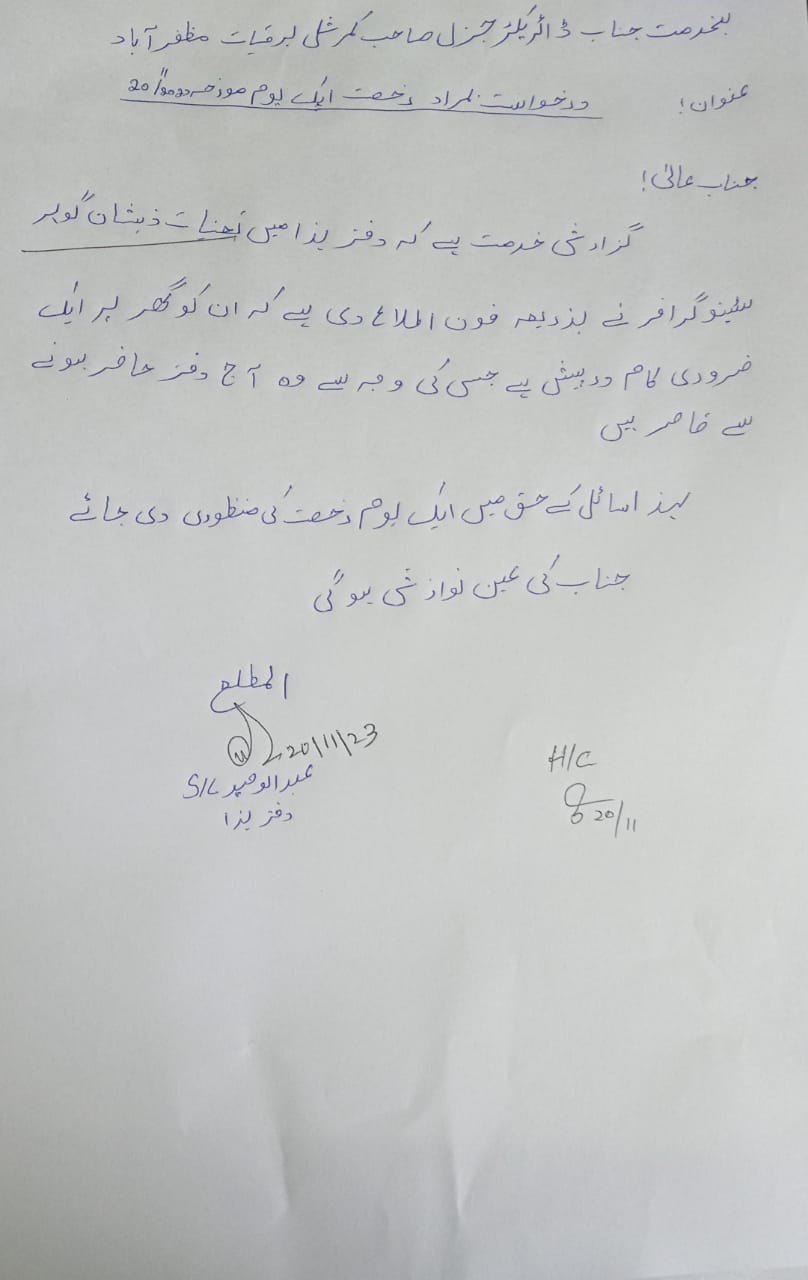 بخدمت جناب ڈائریکٹر جنرل صاحب کمرشل برقیات مظفرآباد
عنوان! درخواست بمراد رخصت ایک یوم مورخہ 20/11
جناب عالی!
گزارش خدمت ہے کہ دفتر ہذا میں تعینات ذیشان گوہر
سٹینوگرافر نے بذریعہ فون اطلاع دی ہے کہ ان کو گھر پر ایک
ضروری کام درپیش ہے جس کی وجہ سے وہ آج دفتر حاضر ہونے
سے قاصر ہیں
لہذا سائل کے حق میں ایک یوم رخصت کی منظوری دی جائے
جناب کی عین نوازش ہوگی
المطلع
20/11/23
H/C
عبدالوحید S/C
20/11
دفتر ہذا